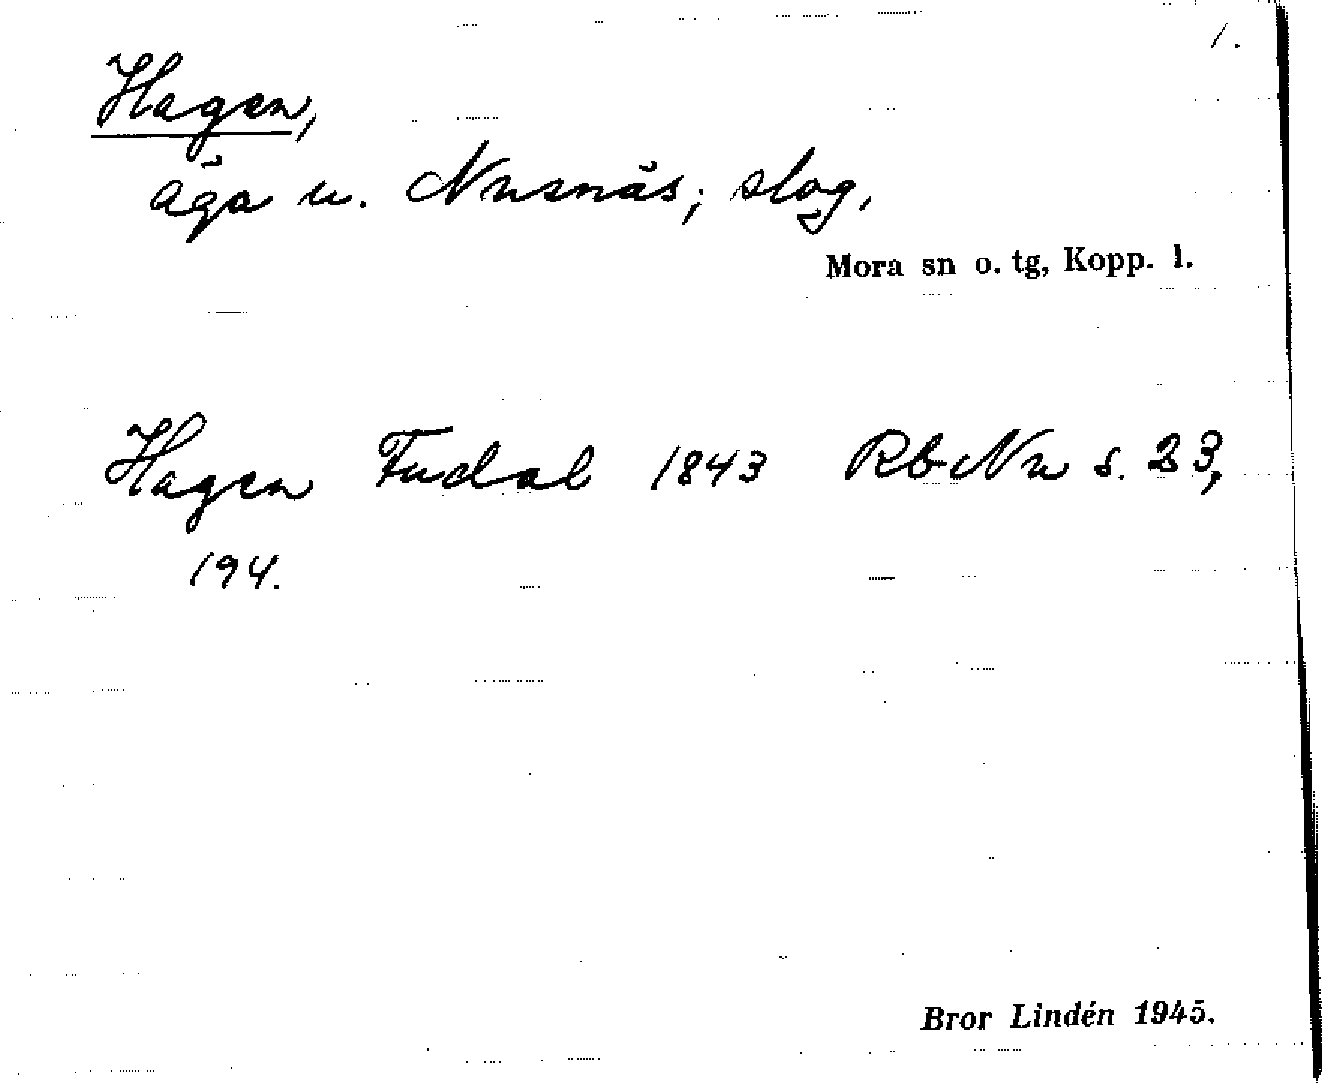 1.
Hagen,
äga u. Nusnäs; slog.
Mora sn o. tg, Kopp. l.
Hagen Fudal 1843 RbNu s. 23,
194.
Bror Lindén 1945.